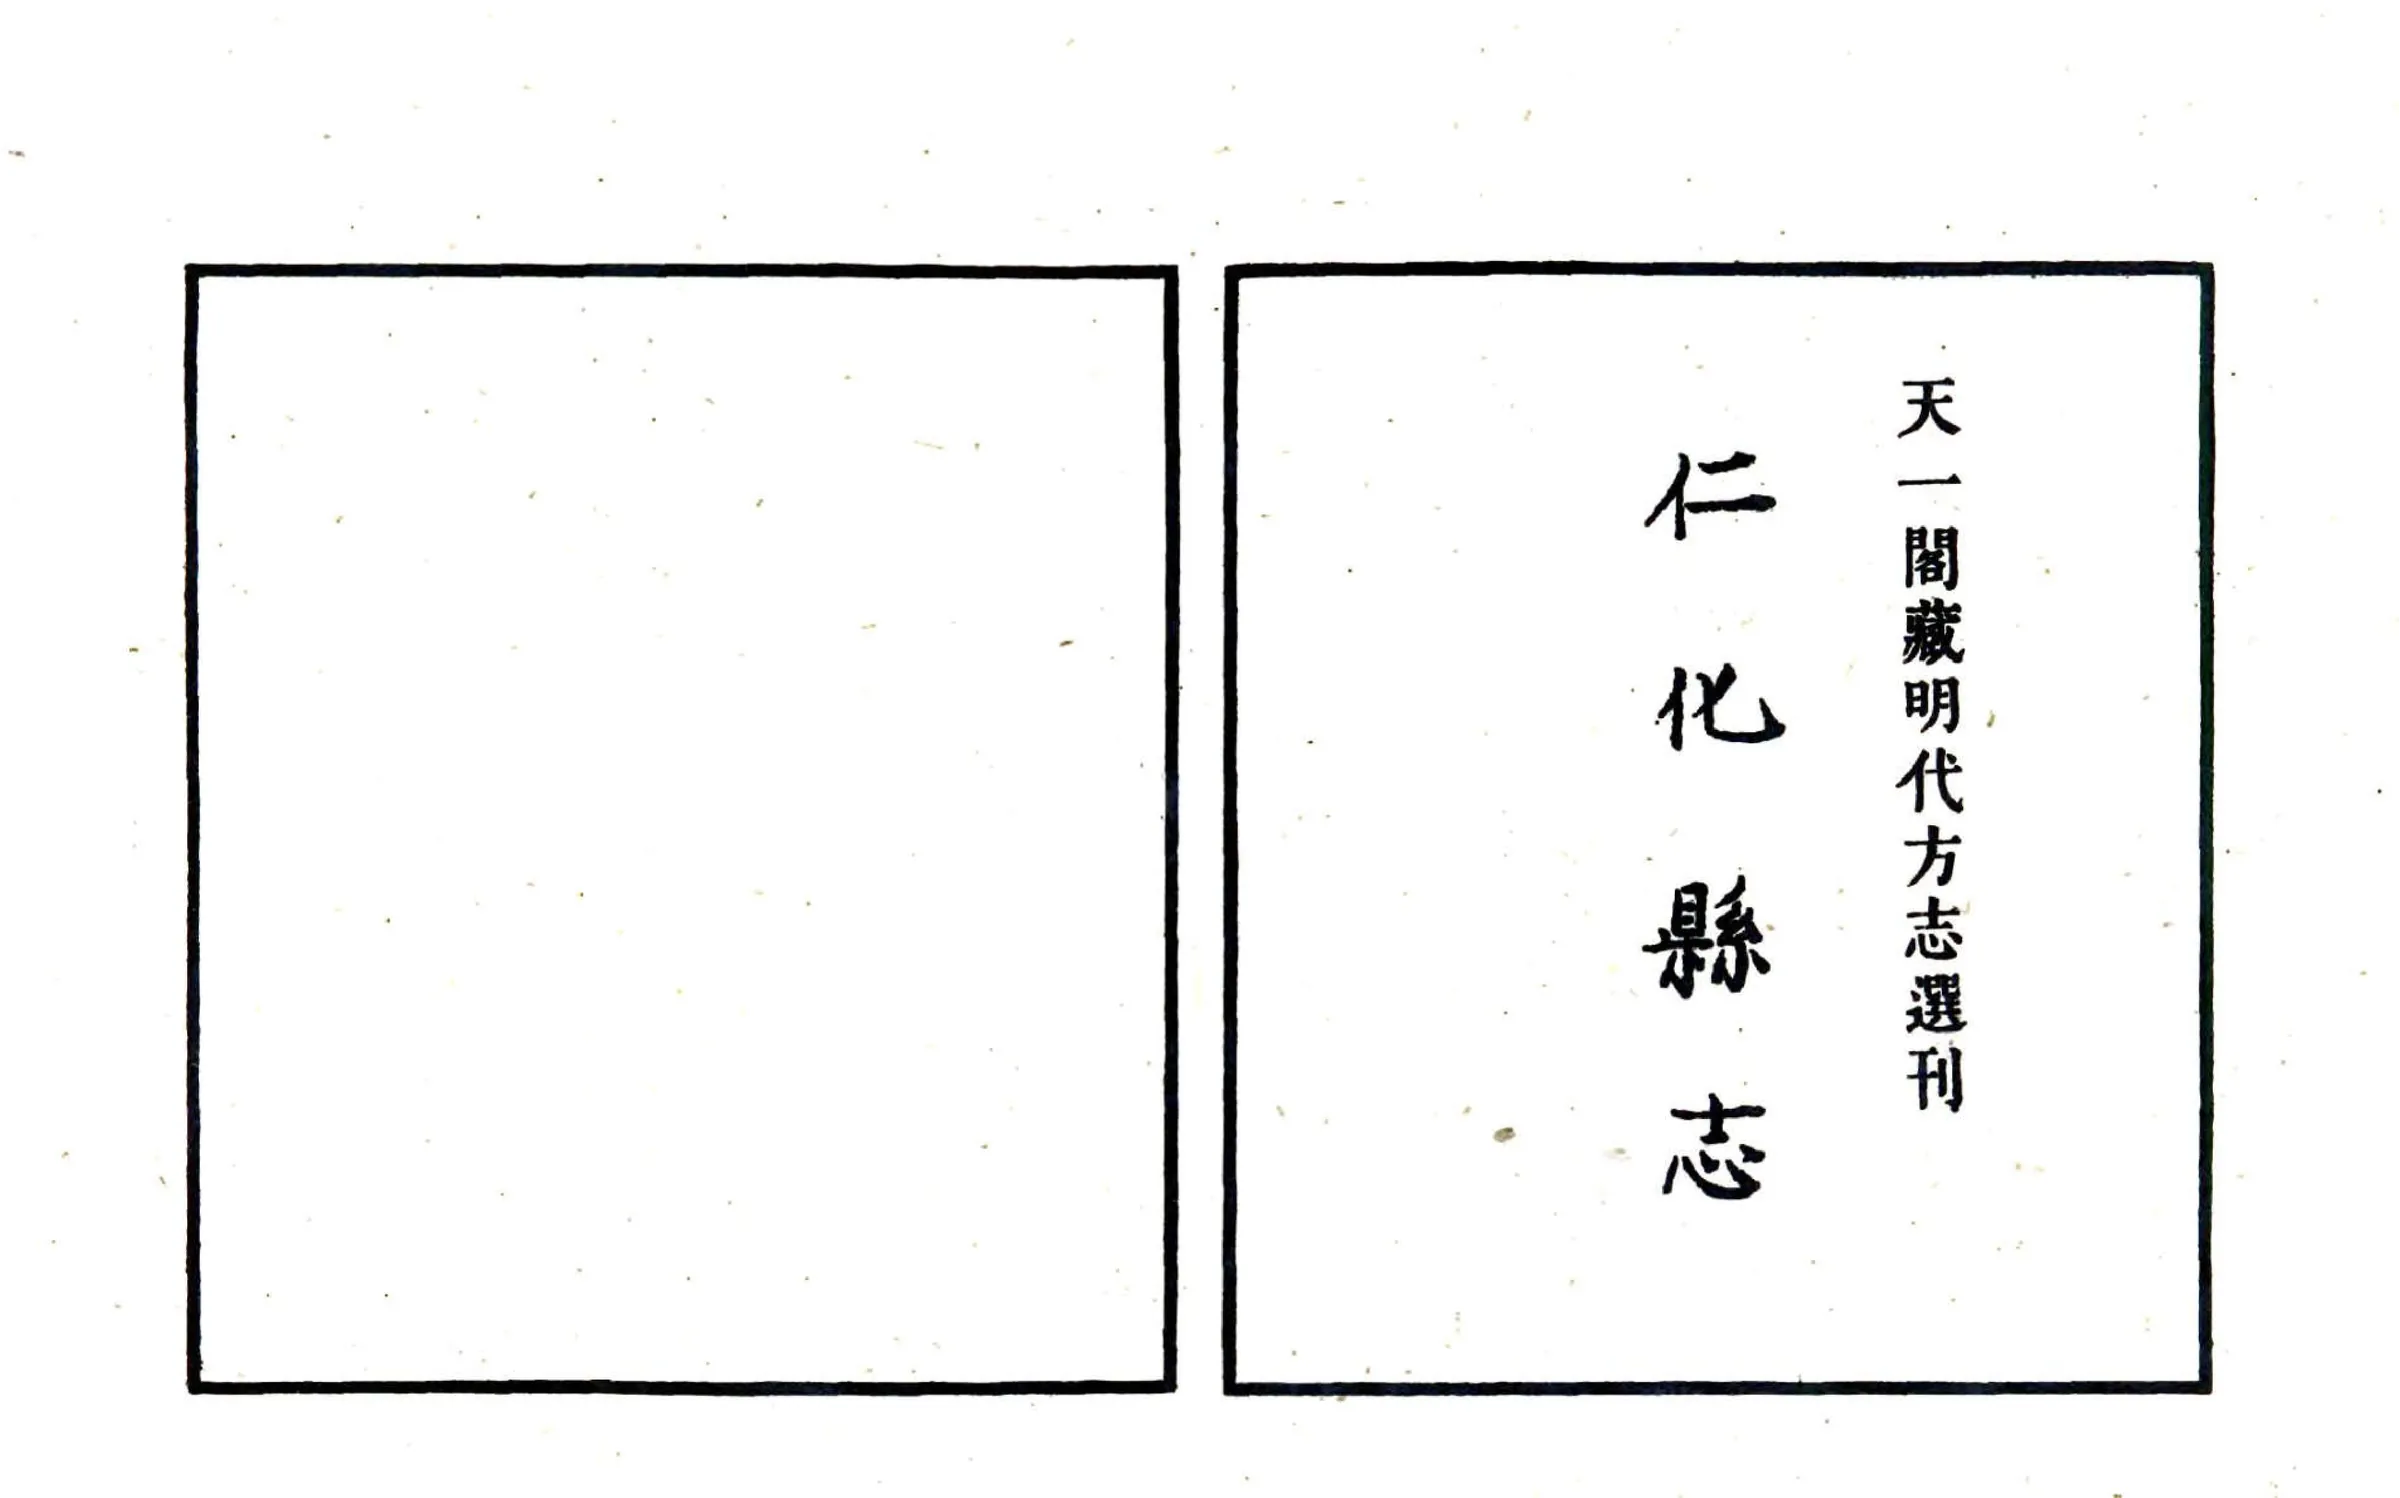 天一閣藏明代方志選刊
仁化縣志